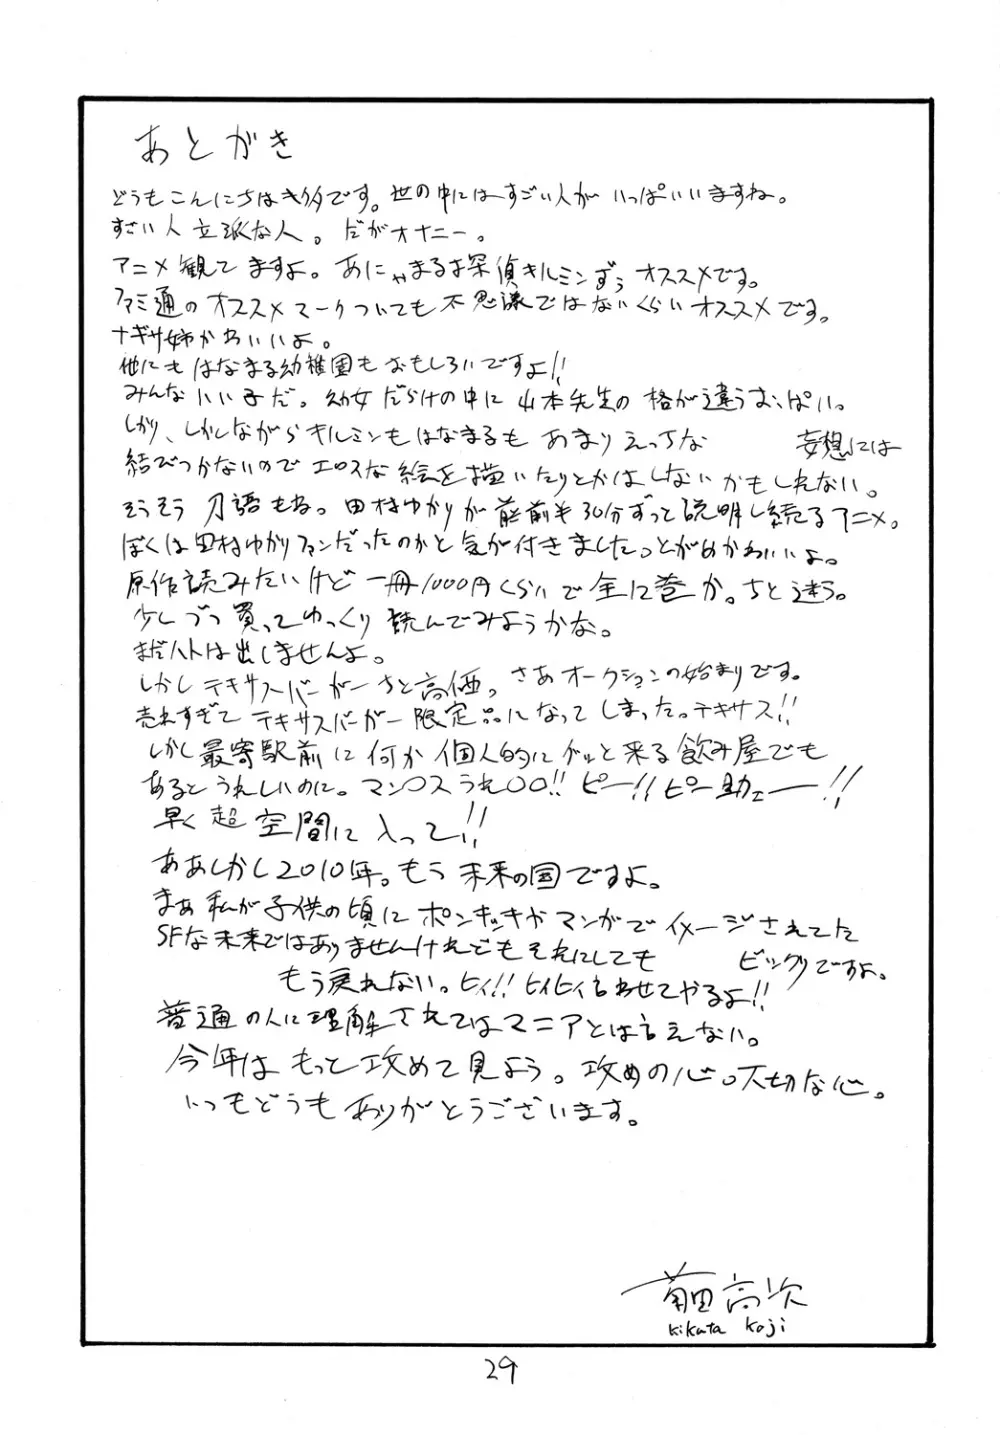 あとがき
どうもこんにちはキクタです。世の中にはすごい人がいっぱいいますね。
すごい人立派な人。だがオナニー。
アニメ観てますよ。あにゃまる探偵キルミンずぅオススメです。
ファミ通のオススメマークついても不思議ではないくらいオススメです。
ナギサ姉かわいいよ。
他にもはなまる幼稚園もおもしろいですよ!!
みんないい子だ。幼女だらけの中に山本先生の格が違うおっぱい。
しかし、しかしながらキルミンもはなまるもあまりえっちな 妄想には
結びつかないのでエロスな絵を描いたりとかはしないかもしれない。
そうそう刀語もね。田村ゆかりが前半30分ずっと説明し続けるアニメ。
ぼくは田村ゆかりファンだったのかと気が付きました。とがめかわいいよ。
原作読みたいけど一冊1000円くらいで全12巻か。ちと迷う。
少しづつ買ってゆっくり読んでみようかな。
まだハトは出しませんよ。
しかしテキサスバーガーちと高価。さあオークションの始まりです。
売れすぎてテキサスバーガー限定品になってしまった。テキサス!!
しかし最寄駅前に何か個人的にグッと来る飲み屋でも
あるとうれしいのに。マン○スうれ○○!!ピー!!ピー助ェー!!
早く超空間に入って!!
ああしかし2010年。もう未来の国ですよ。
まあ私が子供の頃にポンキッキやマンガでイメージされてた
SFな未来ではありませんけれどもそれにしても ビックリですよ。
もう戻れない。ヒィ!!ヒィヒィ言わせてやるよ!!
普通の人に理解されてはマニアとは言えない。
今年はもっと攻めて見よう。攻めの心。大切な心。
いつもどうもありがとうございます。
菊田高次
Kikuta Koji
29